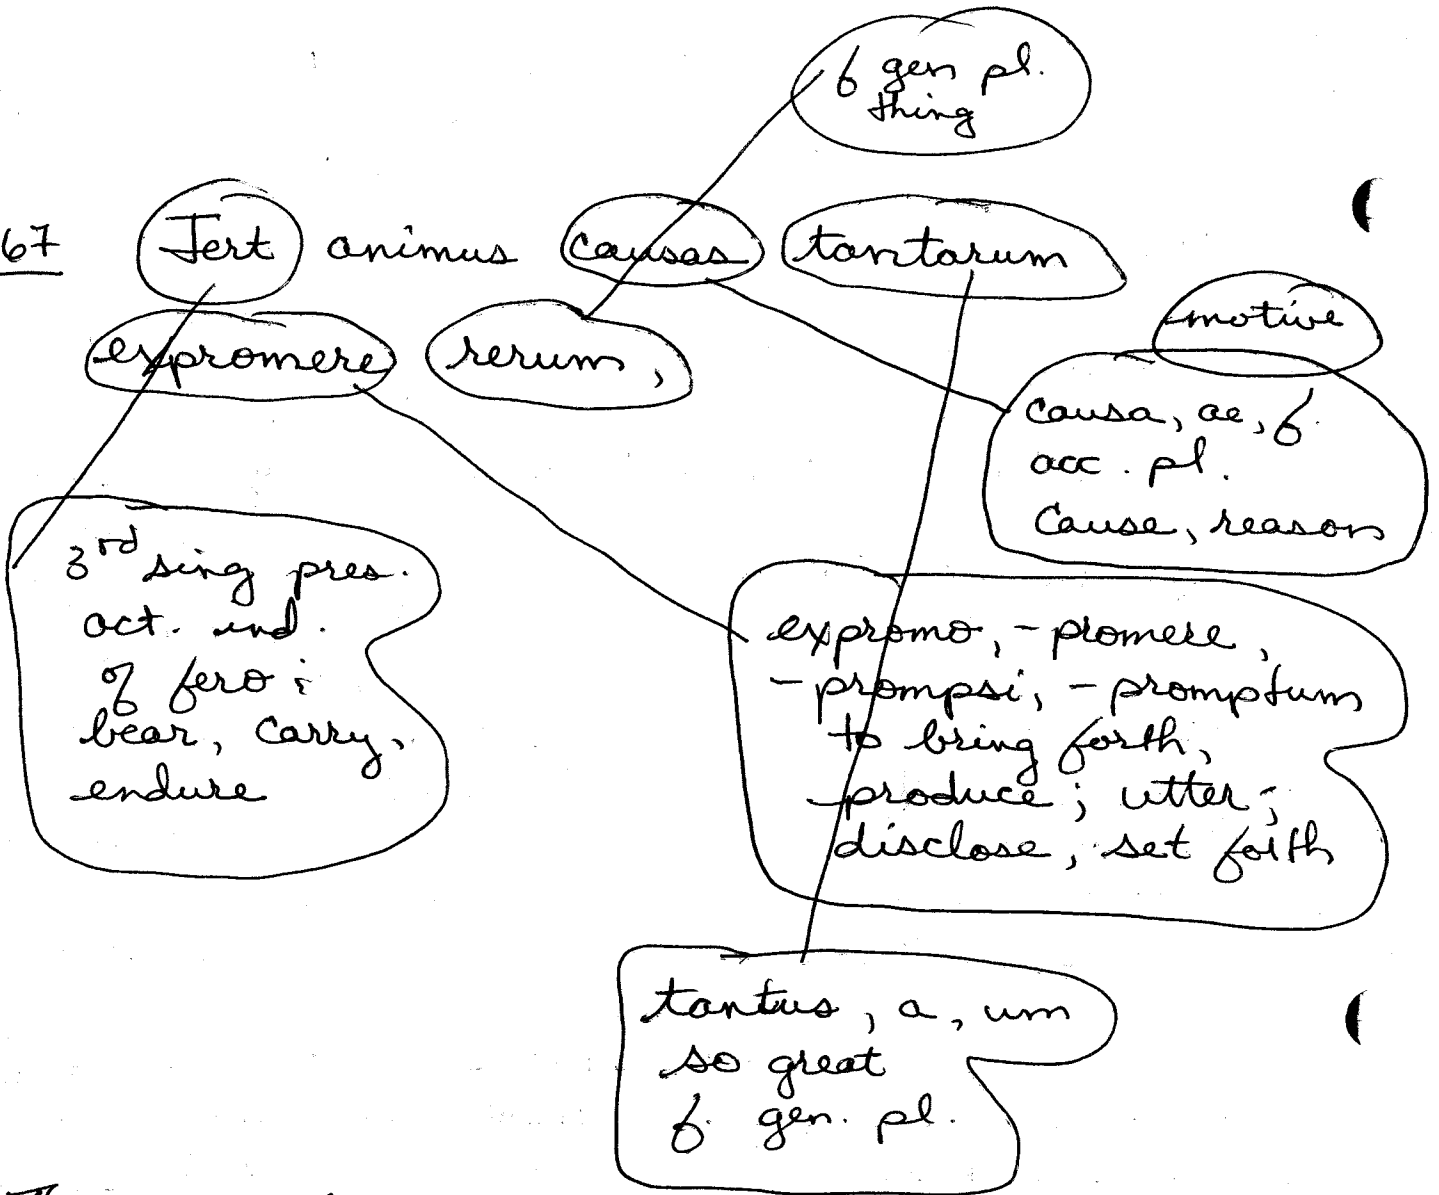 f gen pl.
thing
67 Fert animus causas tantarum
expromere rerum,
motive
causa, ae, f.
acc. pl.
cause, reason
3rd sing pres.
act. ind.
of fero;
bear, carry,
endure
expromo, -promere,
-prompsi, -promptum
to bring forth,
produce; utter;
disclose, set forth
tantus, a, um
so great
f. gen. pl.